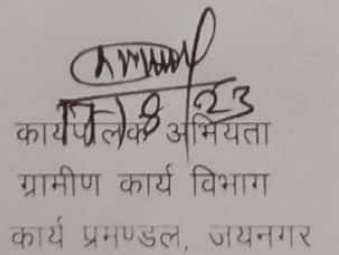 17/8/23
कार्यपालक अभियंता
ग्रामीण कार्य विभाग
कार्य प्रमण्डल, जयनगर